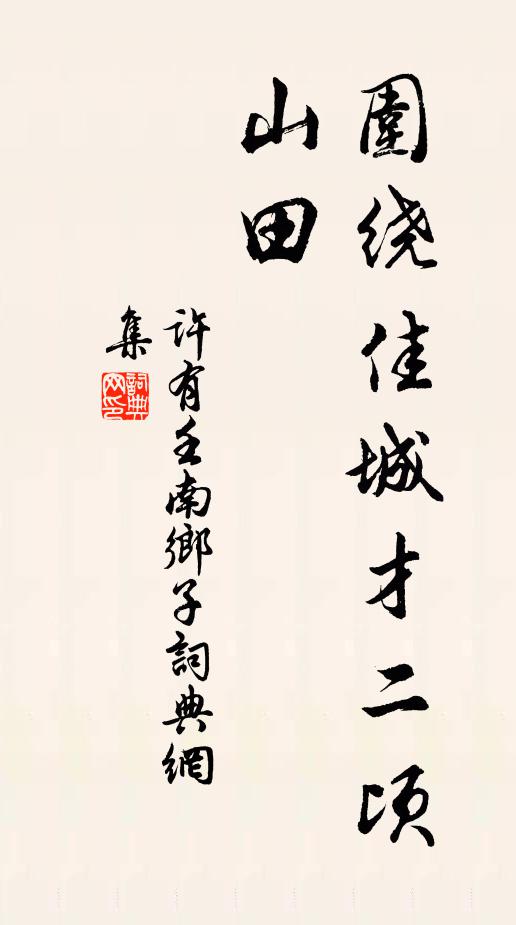 圍绕佳城才二頃
山田
許有壬南鄉子詞典網
集
詞典
网印